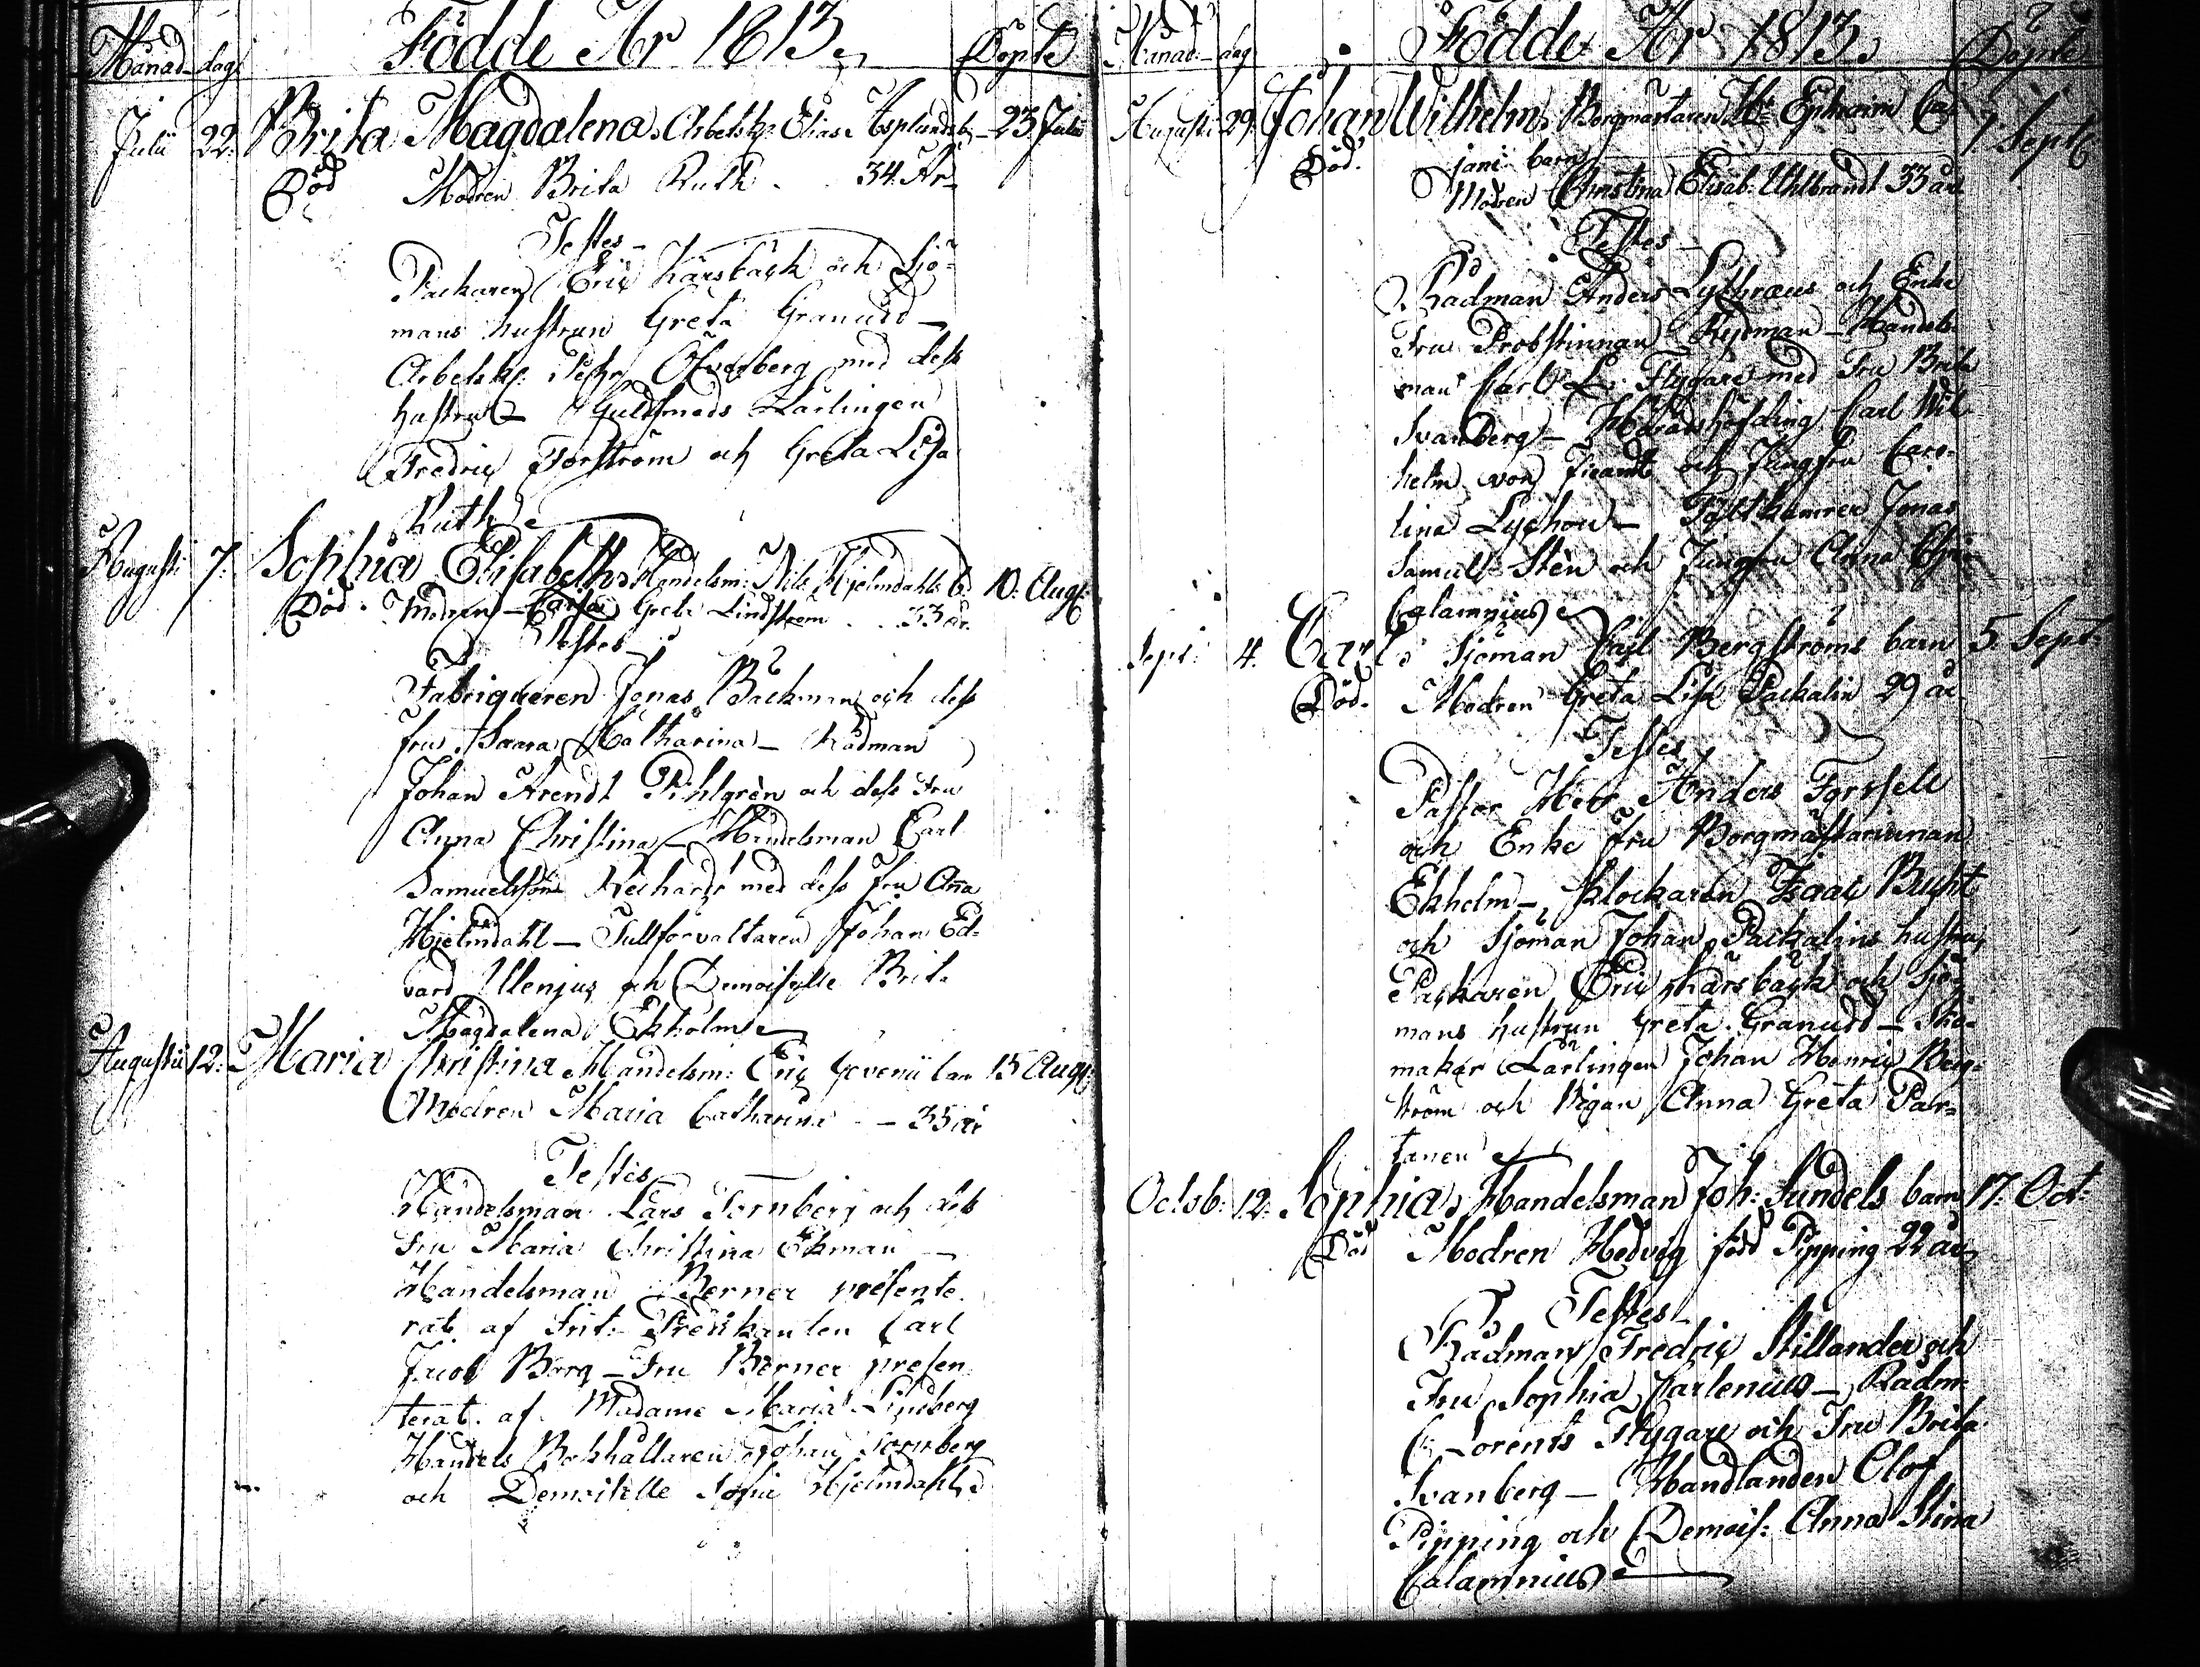 Månad dag Födde År 1813. Döpte
Julii 22. Brita Magdalena. Arbetsk: Elias Asplunds b. 23. Julii
Död Modren Brita Ruth . . 34. År
Testes
Packaren Eric Kårsbäck och Sjö-
mans hustrun Greta Granudd —
Arbetsk: Pehr Öfverberg med dess
hustru — Guldsmeds Lärlingen
Fredric Forsström och Greta Lisa
Ruth
Augusti 7. Sophia Elisabeth. Handelsm: Nils Hjelmdahls b. 10. Aug:
Död. Modren Greta Lindström . . 33 år.
Testes
Fabriqueren Jonas Backman och dess
fru Saara Catharina — Rådman
Johan Arendt Pihlgrèn och dess Fru
Anna Christina — Handelsman Carl
Samuelsson med dess Fru Aña
Hjelmdahl — Tullförvaltaren Johan Ed-
vard Ulenius och Demoiselle Brit.
Magdalena Ekholm
Augustii 12. Maria Christina Handelsm: Eric 13 Aug:
Modren Maria Catharina — 35 år
Testes
Handelsman Lars Tornberg och dess
Fru Maria Christina Ekman —
Handelsman Berner presente-
rat af Carl
Jacob Borg — Fru Berner presen
terat. af. Madame Maria Lindberg
Handels Bokhållaren Johan Tornberg
och Demoiselle Sofia Hjelmdahl
Månad dag Födde År 1813. Döpte
Augusti 29. Johan Wilhelm, Borgmästaren Hr Ephraim Ca- 1 Sept:
Död. jani barn
Modren Christina Elisab: Uhlbrandt 33 år
Testes
Rådman Anders Lythræus och Enke
Fru Probstinnan Rydman — Handels-
man Carl L. Flygare med Fru Brita
Svanberg — Häradshöfding Carl Wil-
helm von och Jungfru Caro-
lina Lychou — Jonas
Samuel Stèn och Jungfru Anna
Calamnius
Sept: 4. Carl. Sjöman Carl Bergströms barn 5. Sept.
Död. Modren Greta Lisa Packalin 29 år
Testes
Pastor Herr Anders Forssell
och Enke Fru Borgmästarinnan
Ekholm — Klockaren Isaac Bucht
och Sjöman Johan Packalins hustru,
Packaren Eric Kårsbäck och Sjö-
mans hustrun Greta. Granudd — Sko-
makar Lärlingen Johan Henric Berg-
ström och Pigan Anna Greta Par-
tanen
Octob: 12. Sophia, Handelsman Joh: Sundels barn 17. Oct:
Död Modren Hedvig född Pipping 22 år
Testes
Rådman Fredric Stillander och
Fru Sophia Carlenius — Rådm:
C. Lorents Flygare och Fru Brita
Svanberg — Handlanden Olof
Pipping och Demois: Anna Stina
Calamnius